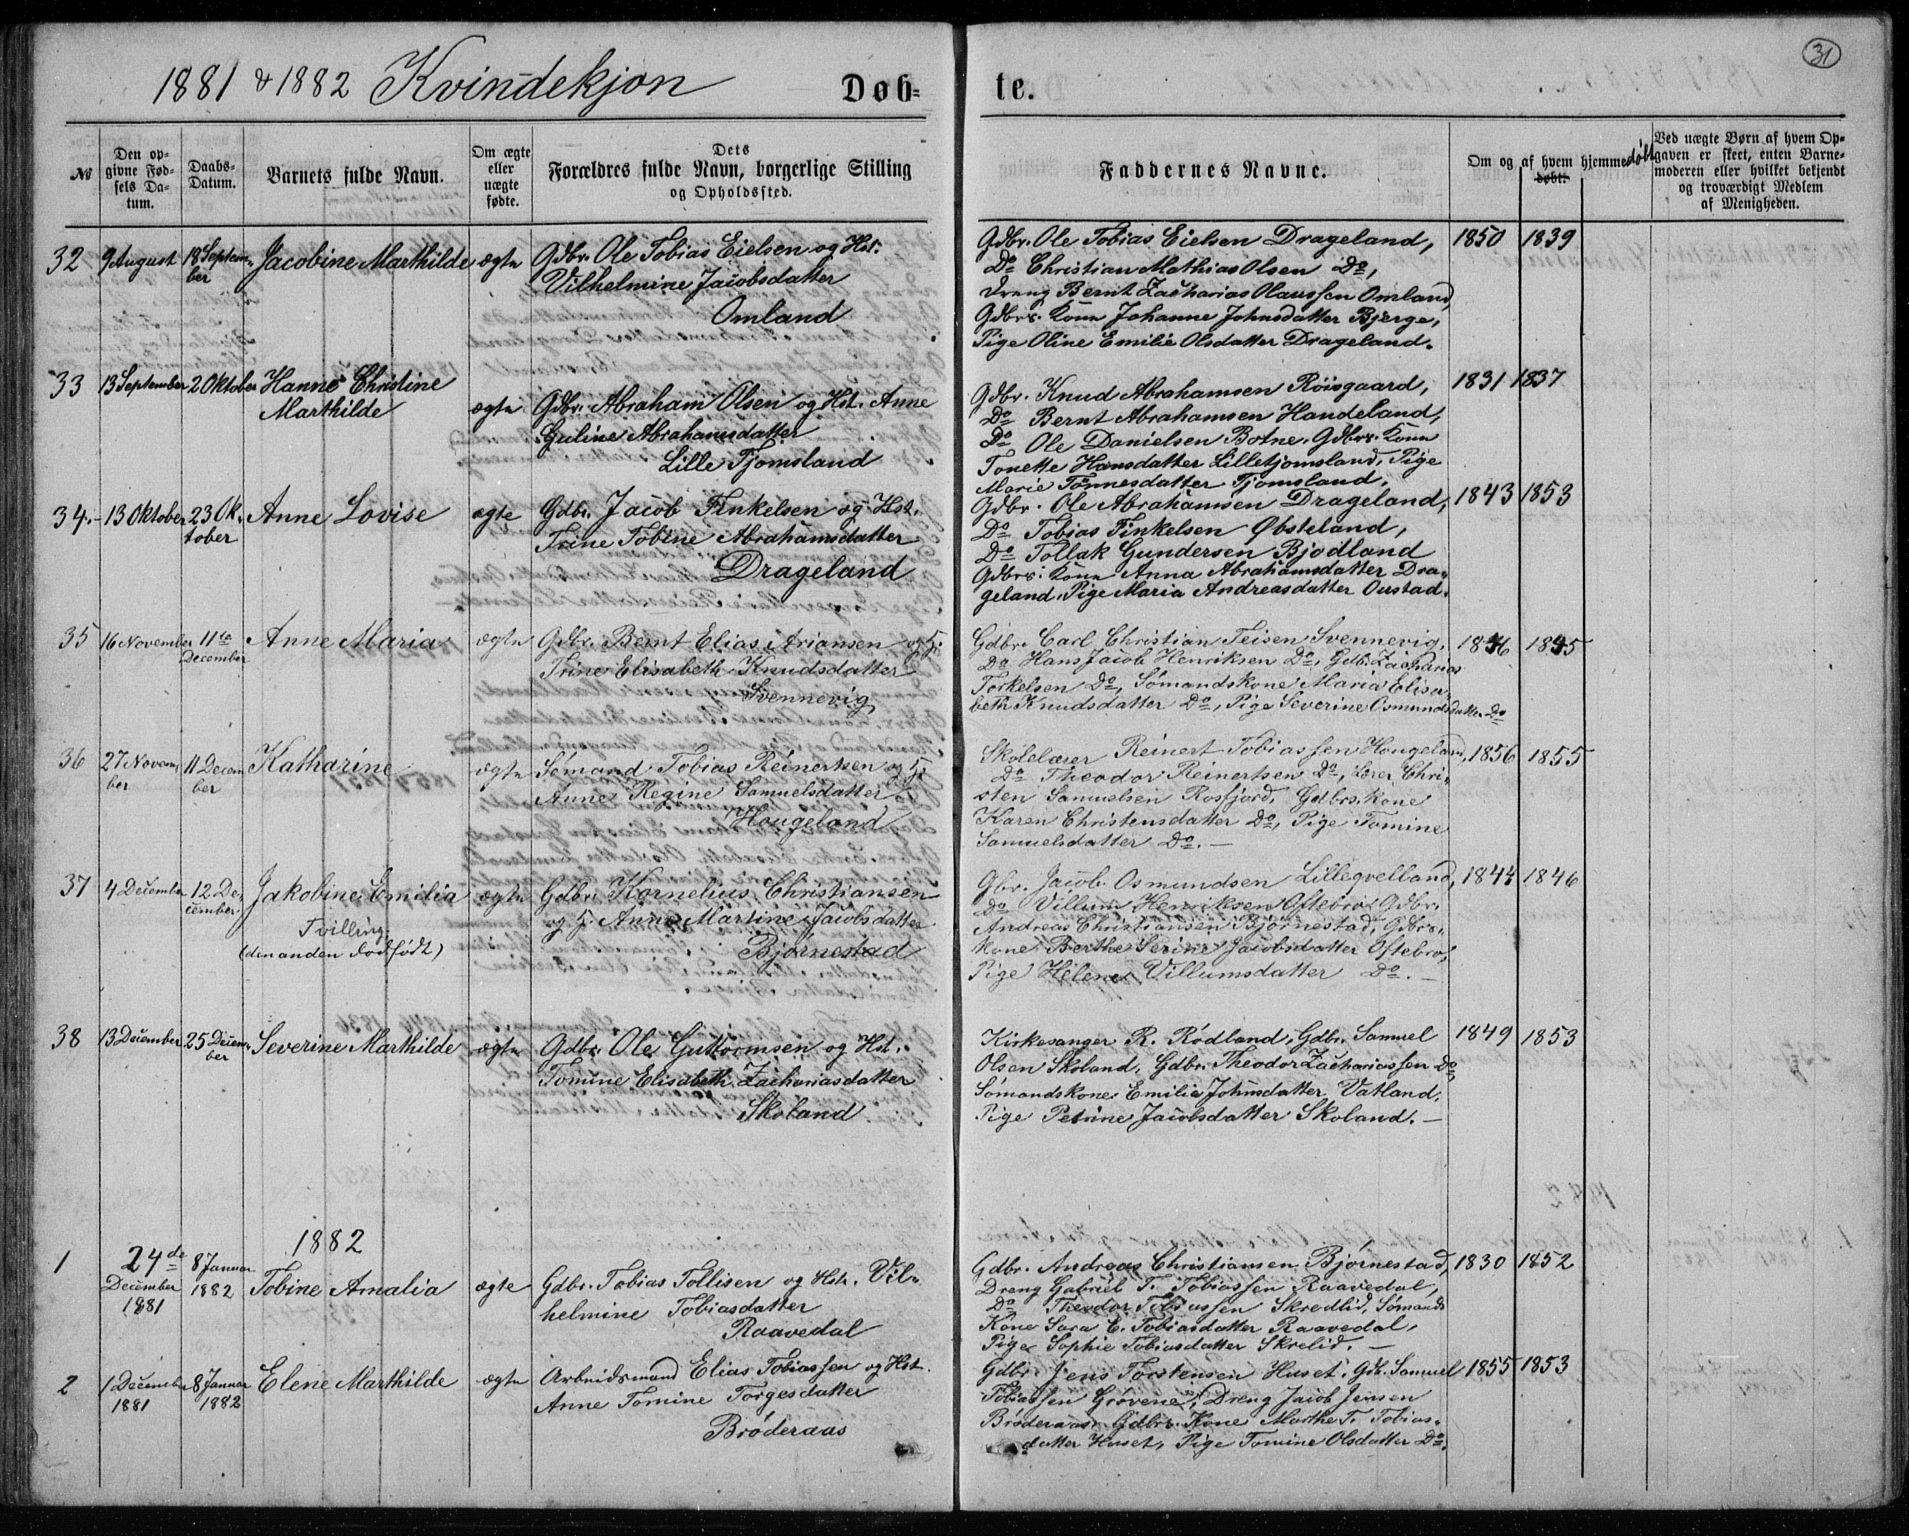 31
1881 & 1882 Kvindekjøn Døb-te.
№
Den op-
givne Fød-
sels Da-
tum.
Daabs-
Datum.
Barnets fulde Navn.
Om ægte
eller
uægte
fødte.
Dets
Forældres fulde Navn, borgerlige Stilling
og Opholdssted.
Faddernes Navne.
Om og af hvem hjemmedøbt
døbt.
Ved uægte Børn af hvem Op-
gaven er skeet, enten Barne-
moderen eller hvilket bekjendt
og troværdigt Medlem
af Menigheden.
32
9 August
18 Septem-
ber
Jacobine Marthilde
ægte
Gdbr. Ole Tobias Eielsen og Hst.
Vilhelmine Jacobsdatter
Omland
Gdbr. Ole Tobias Eielsen Drageland,
Do Christian Mathias Olsen Do,
Dreng Bernt Zacharias Olaussen Omland,
Gdbrs. Kone Johanne Johnsdatter Bjerge,
Pige Oline Emilie Olsdatter Drageland.
1850 1839
33
13 September
2 Oktober
Hanne Christine
Marthilde
ægte
Gdbr. Abraham Olsen og Hst. Anne
Guline Abrahamsdatter
Lille Tjomsland
Gdbr. Knud Abrahamsen Röisgaard,
Do Bernt Abrahamsen Haudeland,
Do Ole Danielsen Botne, Gdbrs. Kone
Tonette Hansdatter Lilletjomsland, Pige
Marie Tönnesdatter Tjomsland.
1831 1837
34.
13 Oktober
23 Ok-
tober
Anne Lovise
ægte
Gdbr. Jacob Finkelsen og Hst.
Trine Tobine Abrahamsdatter
Drageland
Gdbr. Ole Abrahamsen Drageland,
Do Tobias Finkelsen Øbsteland,
Do Tollak Gundersen Bjodland
Gdbrs. Kone Anna Abrahamsdatter Dra-
geland, Pige Maria Andreasdatter Oustad.
1843 1853
35
16 November
11te
December
Anne Maria
ægte
Gdbr. Bernt Elias Ariansen og H.
Trine Elisabeth Knudsdatter
Svennevig
Gdbr. Carl Christian Teisen Svennevig,
Do Hans Jacob Henriksen Do, Gdbr. Zacharias
Torkelsen Do, Sømandskone Maria Elisa-
beth Knudsdatter Do, Pige Severine Osmundsdatter Do
1846 1845
36
27 Novem-
ber
11 Decem-
ber
Katharine
ægte
Sømand Tobias Reinertsen og H.
Anne Regine Samuelsdatter
Hougeland
Skolelærer Reinert Tobiassen Hougeland,
Do Theodor Reinertsen Do, Lærer Chri-
sten Samuelsen Rosfjord, Gdbrs. kone
Karen Christensdatter Do, Pige Tomine
Samuelsdatter Do. —
1856 1855
37
4 December
12 De-
cember
Jakobine Emilia
Tvilling
(den anden dødfødt)
ægte
Gdbr. Kornelius Christiansen
og H. Anne Martine Jacobsdatter
Bjørnestad
Gbr. Jacob Osmundsen Lillegvelland,
Do Villum Henriksen Oftebro, Gdbr.
Andreas Christiansen Bjørnestad, Gdbrs.
kone Berthe Serine Jacobsdatter Oftebro,
Pige Helene Villumsdatter Do. —
1844 1846
38
13 December
25 Decem-
ber
Severine Marthilde
ægte
Gdbr. Ole Guttormsen og Hst.
Tomine Elisabeth Zachariasdatter
Skoland
Kirkesanger R. Rødland, Gdbr. Samuel
Olsen Skoland, Gdbr. Theodor Zachariassen Do,
Sømandskone Emilie Johnsdatter Vatland,
Pige Petrine Jacobsdatter Skoland. —
1849 1853
1882
1
24de
December
1881
8 Januar
1882
Tobine Amalia
ægte
Gdbr. Tobias Tollisen og Hst. Vil-
helmine Tobiasdatter
Raavedal
Gdbr. Andreas Christiansen Bjørnestad,
Dreng Gabriel T. Tobiassen Raavedal,
Do Theodor Tobiassen Skredlid, Sømands
Kone Sara E. Tobiasdatter Raavedal,
Pige Sophie Tobiasdatter Skrelid. —
1830 1852
2
1 December
1881
8 Januar
1882
Elene Marthilde
ægte
Arbeidsmand Elias Tobiassen og Hst.
Anne Tomine Torgesdatter
Brøderaas
Gdbr. Jens Torstensen Huset, Gdb. Samuel
Tobiassen Grøvene, Dreng Jacob Jensen
Brøderaas, Gdbrs. Kone Marthe T. Tobias-
datter Huset, Pige Tomine Olsdatter Do.
1855 1853